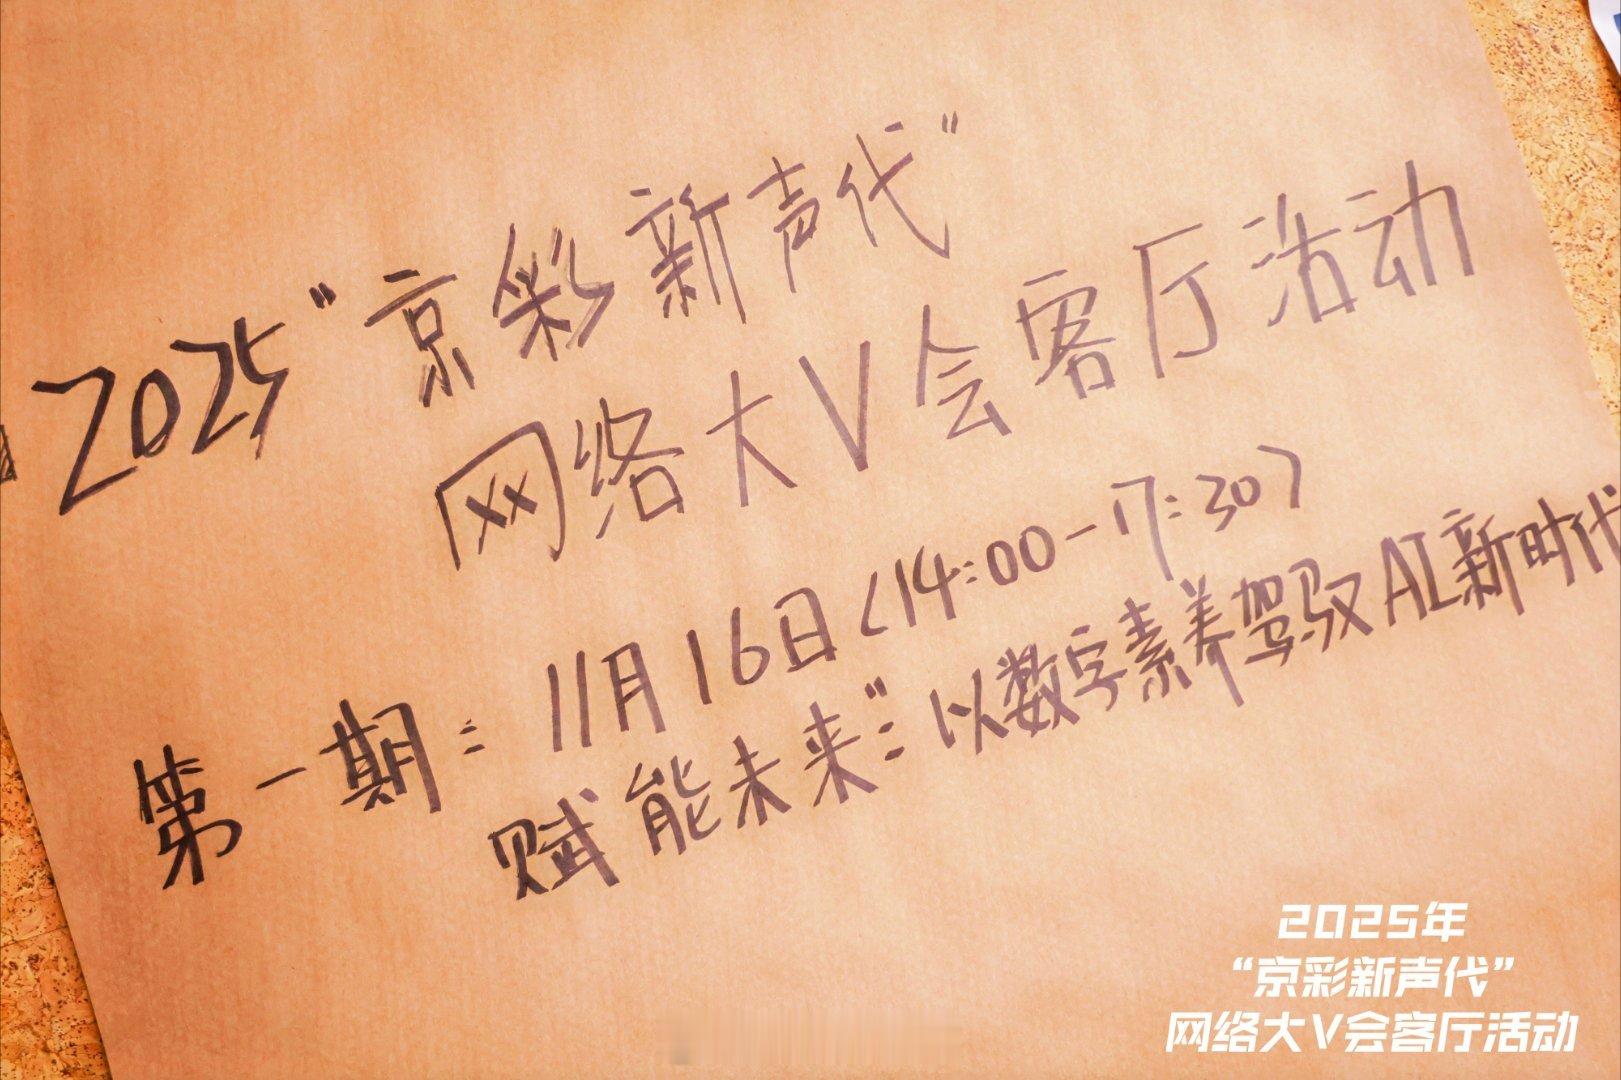 2025“京彩新声代”
网络大V会客厅活动
第一期：11月16日(14:00-17:30)
赋能未来”：以数字素养驾驭AI新时代
2025年
“京彩新声代”
网络大V会客厅活动